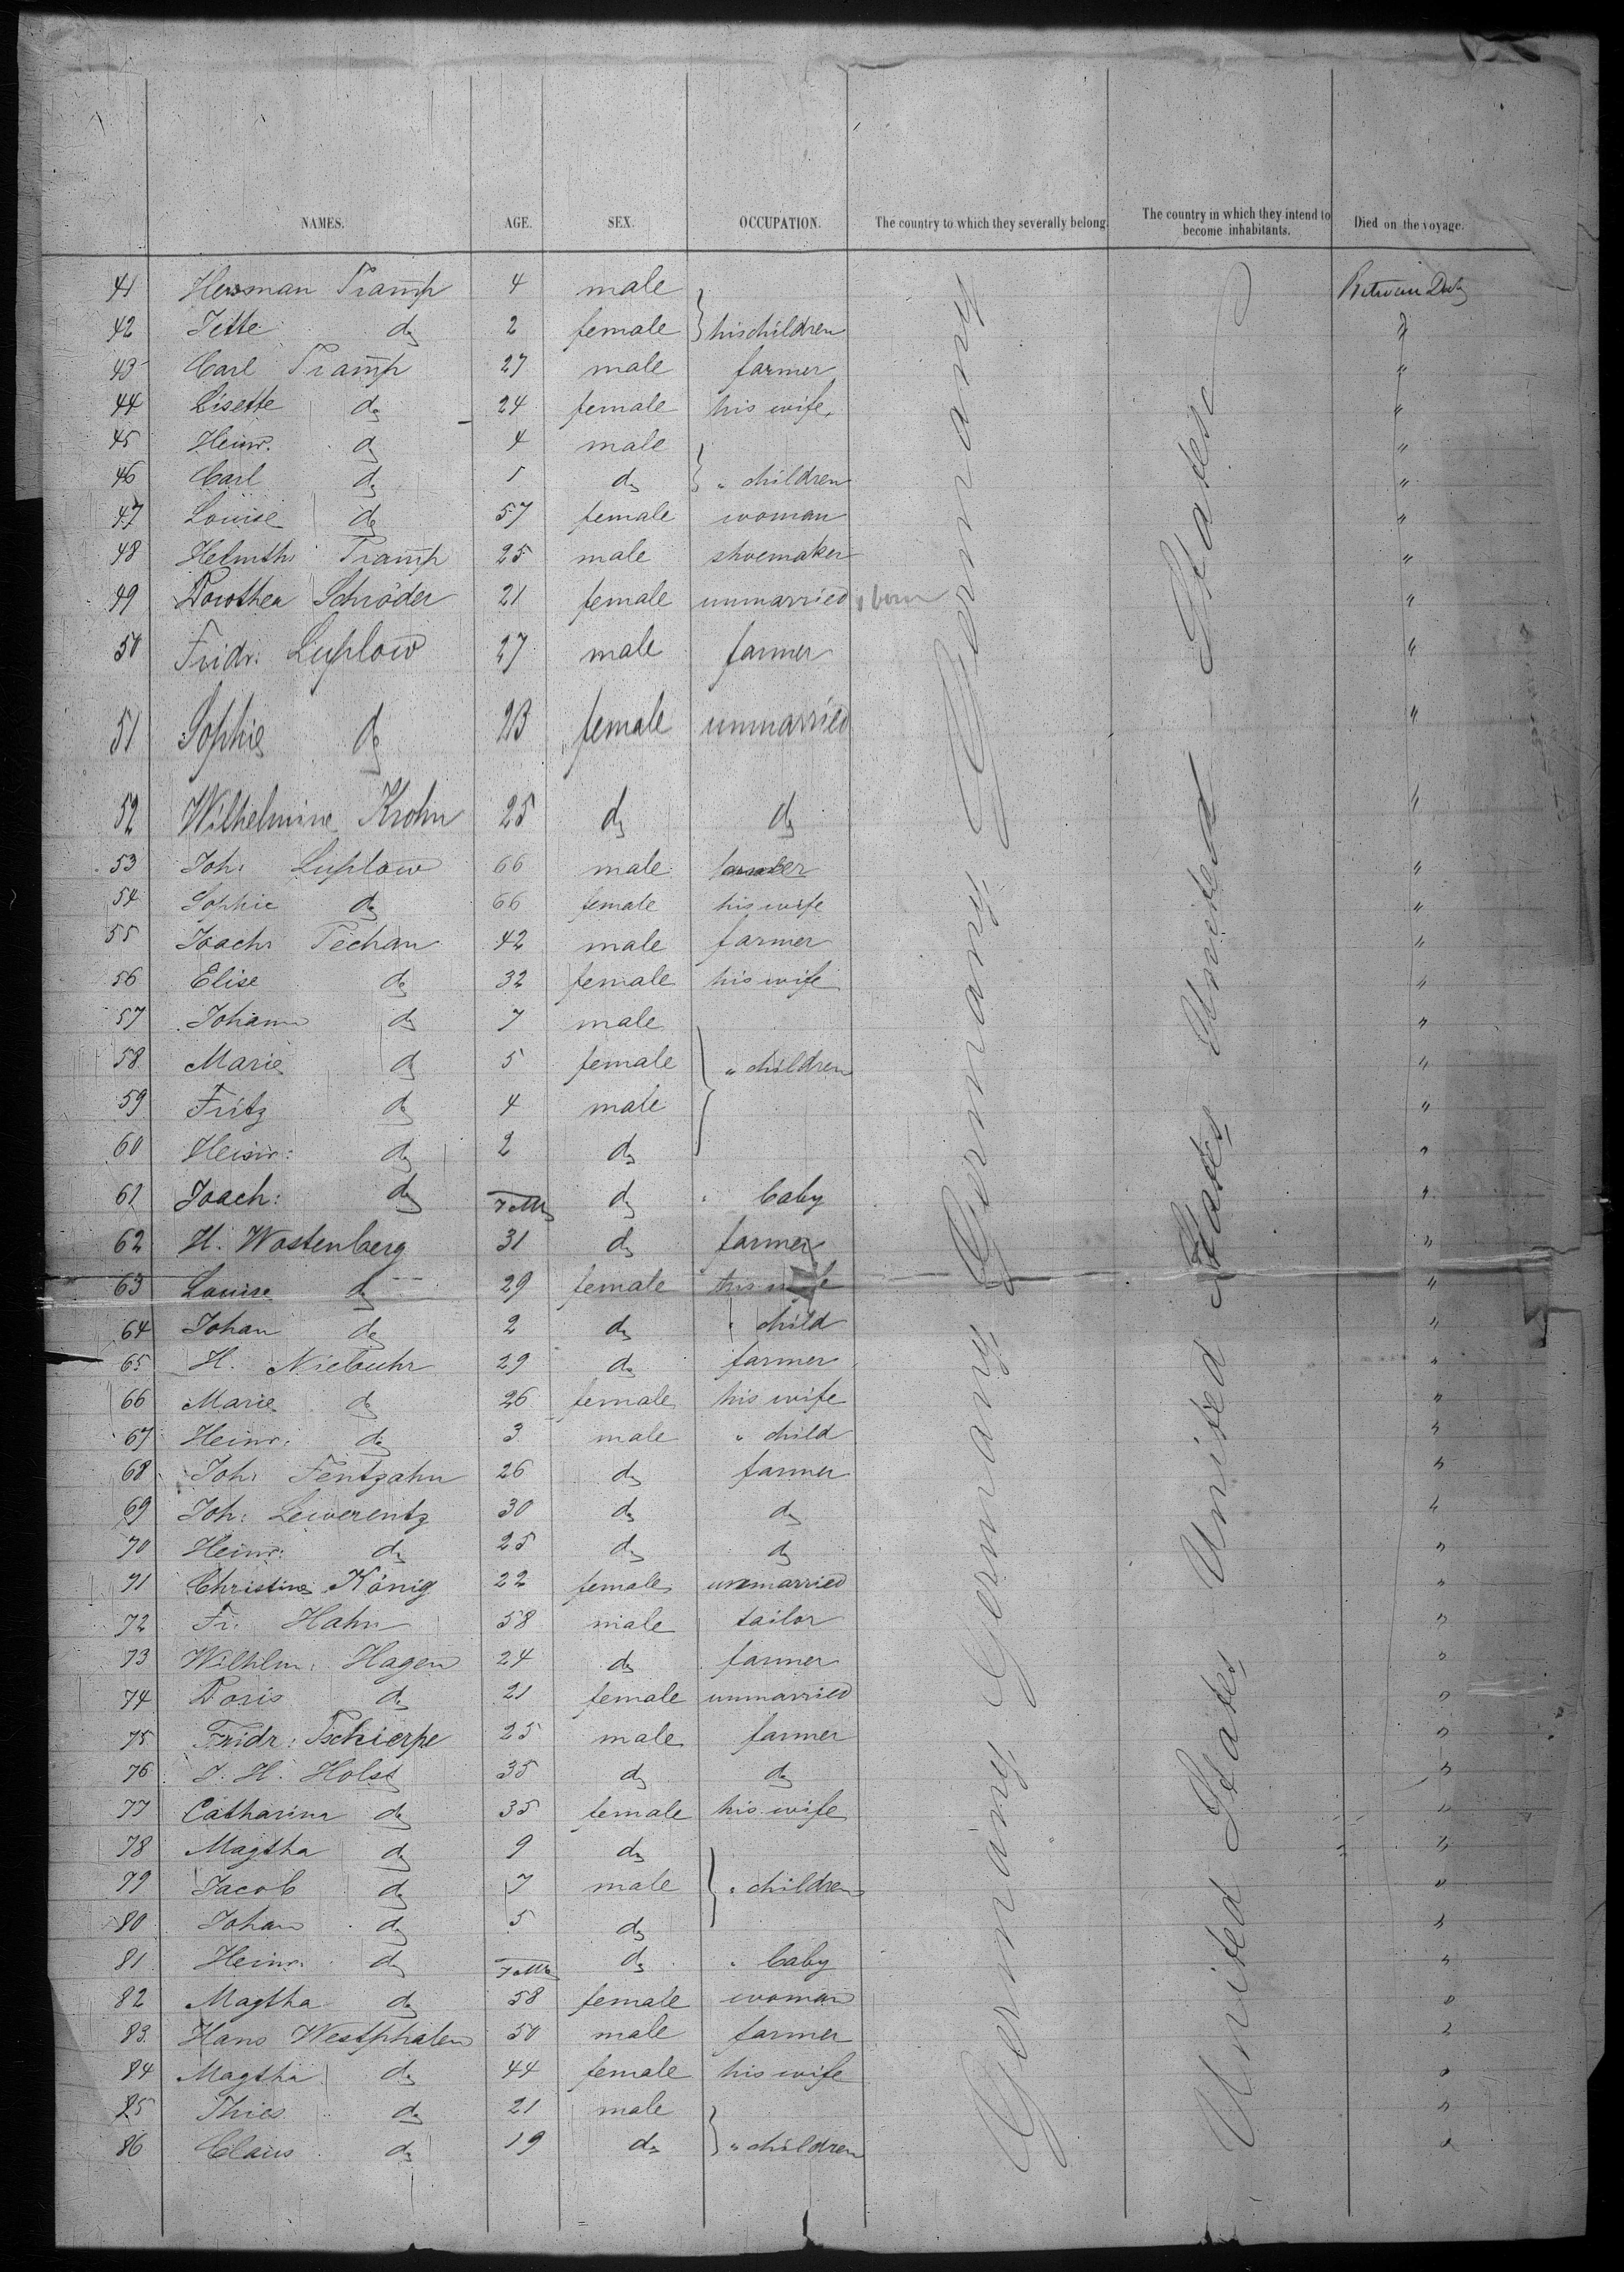 NAMES. AGE. SEX. OCCUPATION. The country to which they severally belong. The country in which they intend to become inhabitants. Died on the voyage.
41 Herman Tramp 4 male Between Deck
42 Jette do 2 female his children "
43 Carl Tramp 27 male farmer "
44 Lisette do 24 female his wife "
45 Heinr. do 4 male "
46 Carl do do " children "
47 Louise do 57 female woman "
48 Helmth Tramp 25 male shoemaker "
49 Dorothea Schröder 21 female unmarried "
50 Fridr: Luplow 27 male farmer "
51 Sophie do 23 female unmarried "
52 Wilhelmine Krohn 25 do do "
53 Joh: Luplow 66 male "
54 Sophie do 66 female his wife "
55 Joach: Techan 42 male farmer "
56 Elise do 32 female his wife "
57 Johann do 7 male "
58 Marie do 5 female " children "
59 Fritz do 4 male "
60 Heinr: do 2 do "
61 Joach: do do " baby "
62 H. Wostenberg 31 do farmer "
63 Louise do 29 female his wife "
64 Johan do 2 do " child "
65 H. Niebuhr 29 do farmer "
66 Marie do 26 female his wife "
67 Heinr. do 3 male " child "
68 Joh: Fentzahn 26 do farmer "
69 Joh: Lewerentz 30 do do "
70 Heinr: do 25 do do "
71 Christine König 22 female unmarried "
72 Fr. Hahn 58 male tailor "
73 Wilhlm: Hagen 24 do farmer "
74 Doris do 21 female unmarried "
75 Fridr: Tschierpe 25 male farmer "
76 J. H. Holst 35 do do "
77 Catharina do 35 female his wife "
78 Magtha do 9 do "
79 Jacob do 7 male " children "
80 Johan do 5 do "
81 Heinr. do do " baby "
82 Magtha do 58 female woman "
83 Hans Westphalen 50 male farmer "
84 Magtha do 44 female his wife "
85 Thies do 21 male "
86 Claus do 19 do " children "
Germany Germany Germany Germany
United States United States United States